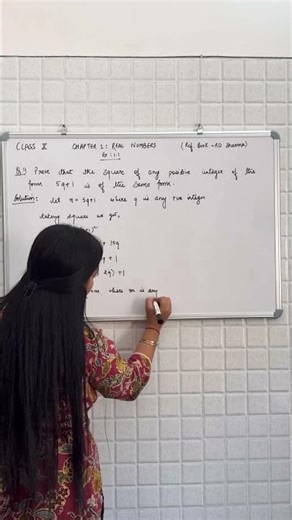 CLASS X CHAPTER 1: REAL NUMBERS (Ref. Book - RD Sharma)
Ex: 1.1
Q.9 Prove that the square of any positive integer of the
form 5q+1 is of the same form.
Solution: Let n = 5q+1 where q is any +ve integer
taking square we get,
+ 10q
+ 1
2q) + 1
where m is any